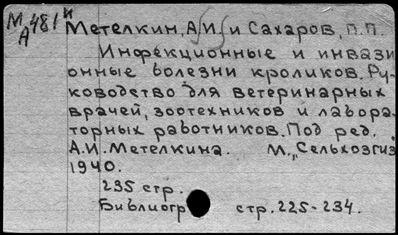 М481к Метелкин, А.И. и Сахаров, П.П.
А
Инфекционные и инвази-
онные болезни кроликов. Ру-
ководство для ветеринарных
врачей, зоотехников и лабора-
торных работников. Под ред.
А.И. Метелкина. М., "Сельхозгиз"
1940.
235 стр.
Библиогр стр. 225-234.